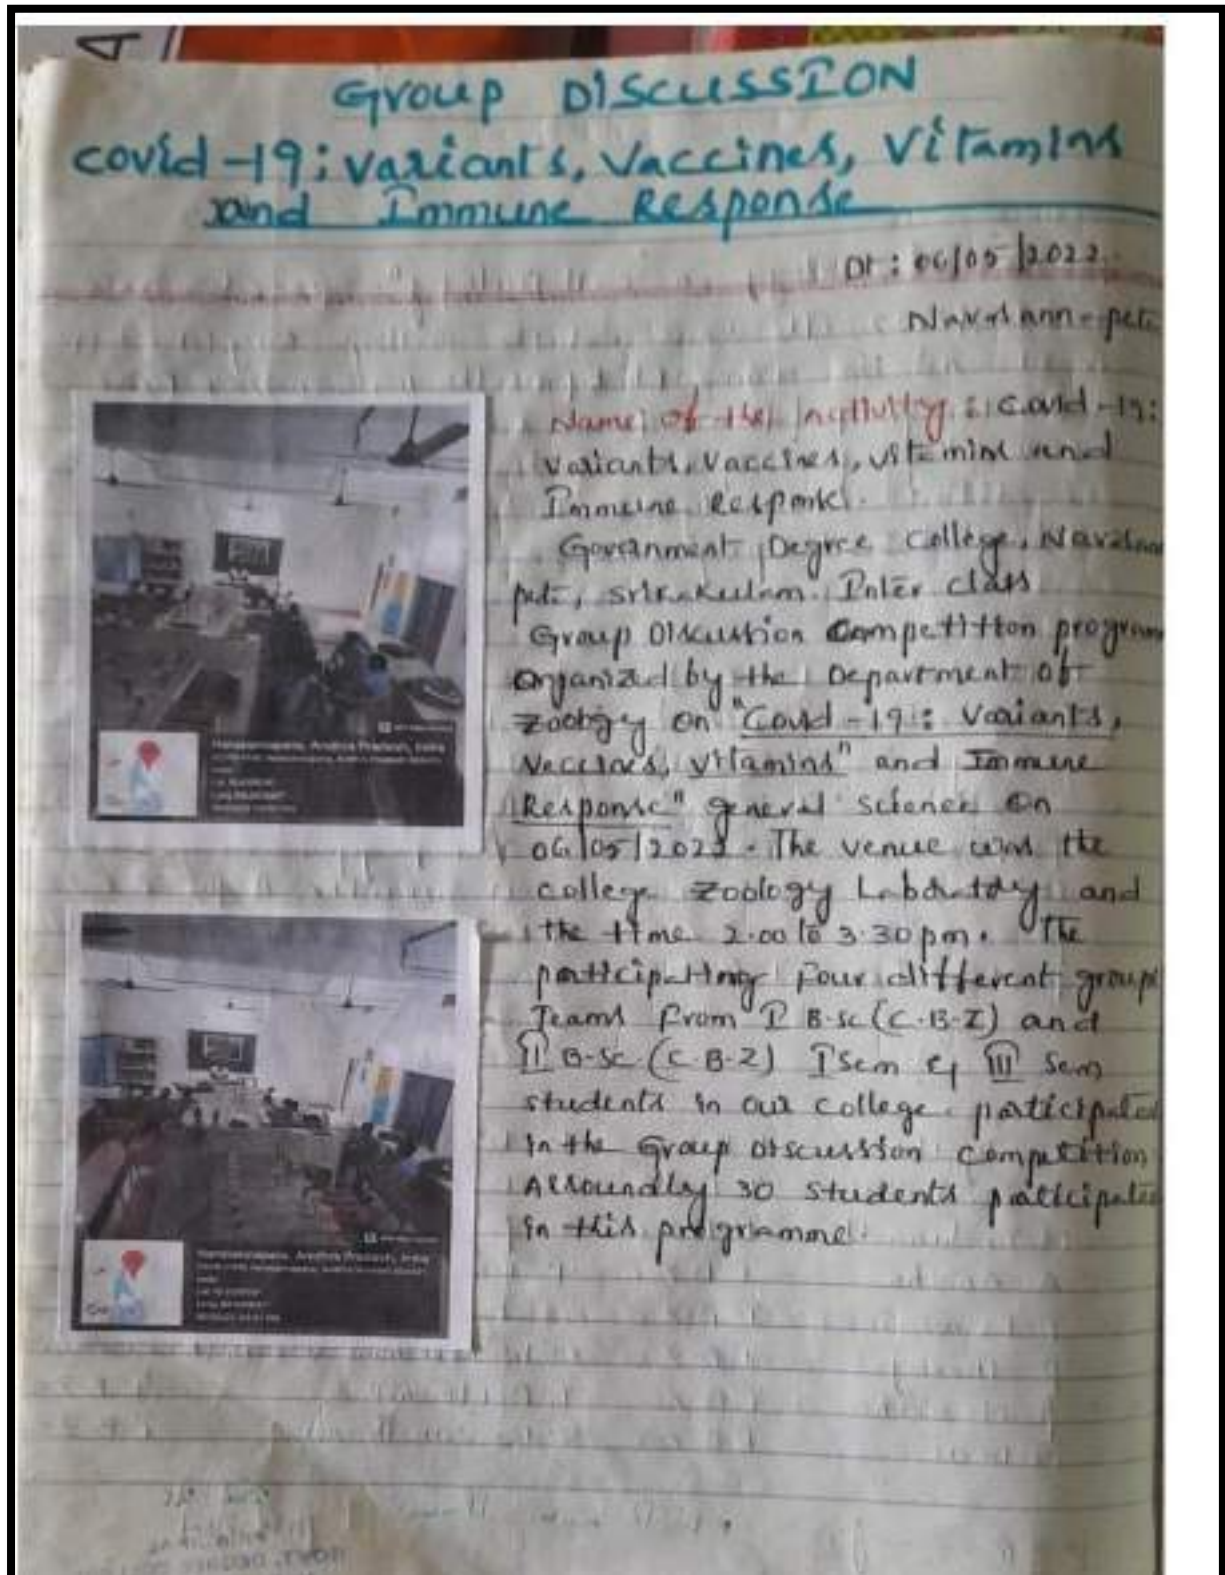 Group DISCUSSION
covid-19: variants, Vaccines, Vitamins
and Immune Response
Dt: 06/05/2022.
Name of the activity: Covid-19:
variants, vaccines, vitamins and
Immune Response.
Government Degree College,
peta, Srikakulam. Inter class
Group Discussion Competition program
Organized by the Department of
Zoology on "Covid-19: Variants,
Vaccines, Vitamins" and Immune
Response" general science on
06/05/2022. The venue was the
college Zoology Labortory and
the time 2.00 to 3.30pm. The
participating Four different groups
Teams from I B.sc (C.B.Z) and
II B.sc (C.B.Z) I Sem & III Sem
students in our college participated
in the Group Discussion competition
Arroundly 30 students participated
in this programme.
Andhra Pradesh, India
Andhra Pradesh, India